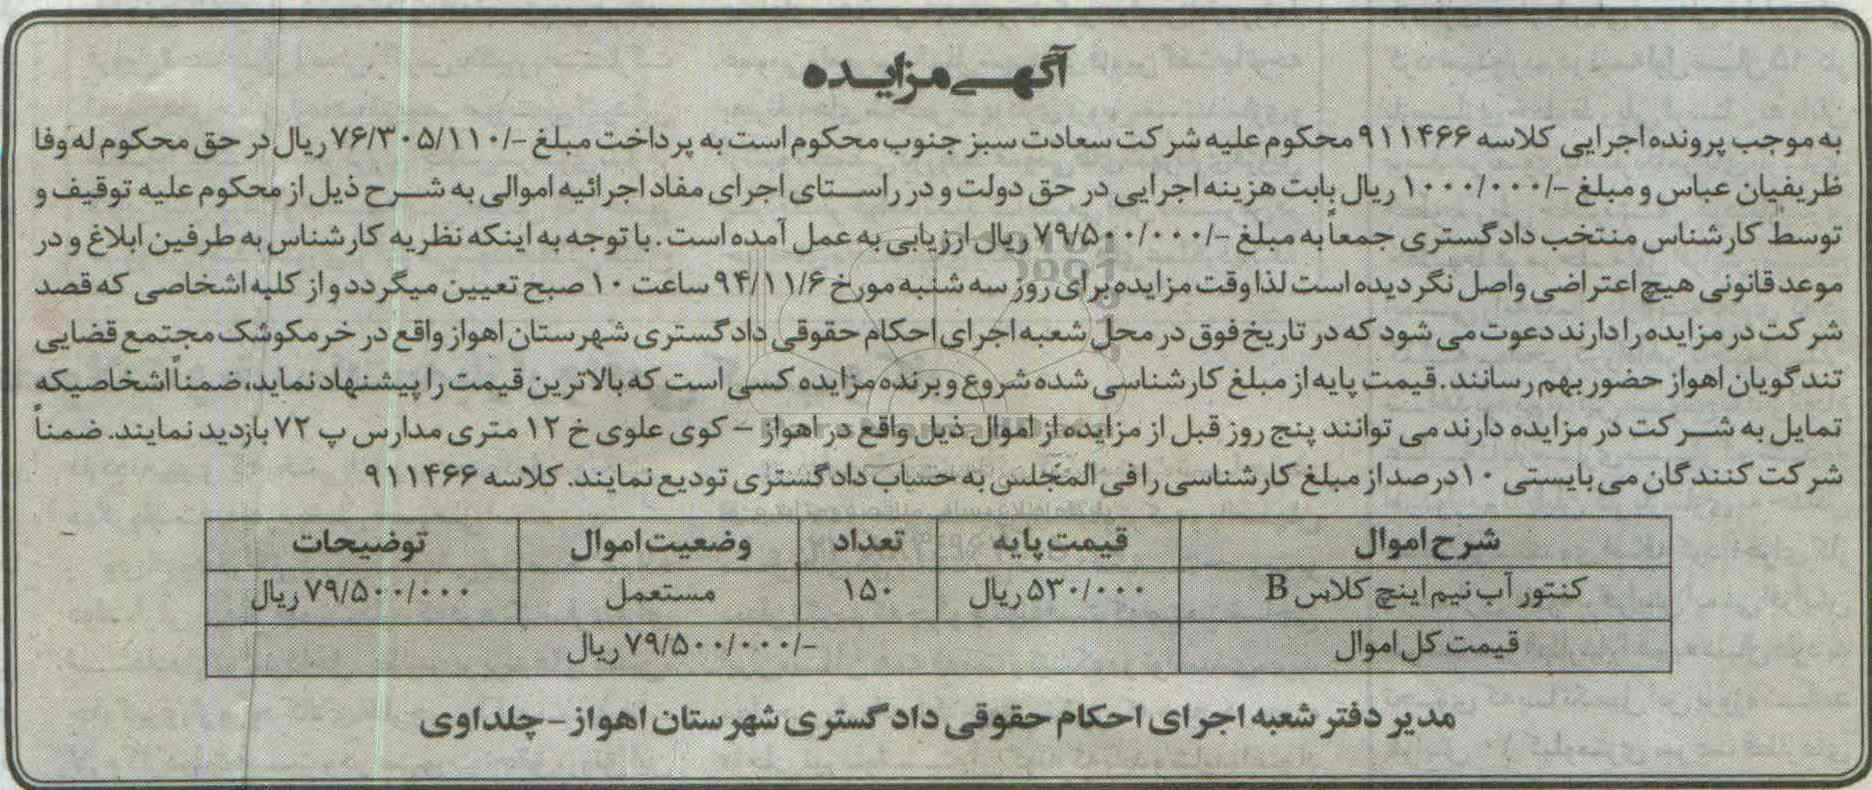 آگهی مزایده
به موجب پرونده اجرایی کلاسه ۹۱۱۴۶۶ محکوم علیه شرکت سعادت سبز جنوب محکوم است به پرداخت مبلغ -/۷۶/۳۰۵/۱۱۰ ریال در حق محکوم له وفا
ظریفیان عباس و مبلغ -/۱۰۰۰/۰۰۰ ریال بابت هزینه اجرایی در حق دولت و در راستای اجرای مفاد اجرائیه اموالی به شرح ذیل از محکوم علیه توقیف و
توسط کارشناس منتخب دادگستری جمعاً به مبلغ -/۷۹/۵۰۰/۰۰۰ ریال ارزیابی به عمل آمده است. با توجه به اینکه نظریه کارشناس به طرفین ابلاغ و در
موعد قانونی هیچ اعتراضی واصل نگردیده است لذا وقت مزایده برای روز سه شنبه مورخ ۹۴/۱۱/۶ ساعت ۱۰ صبح تعیین میگردد و از کلیه اشخاصی که قصد
شرکت در مزایده را دارند دعوت می شود که در تاریخ فوق در محل شعبه اجرای احکام حقوقی دادگستری شهرستان اهواز واقع در خرمکوشک مجتمع قضایی
تندگویان اهواز حضور بهم رسانند. قیمت پایه از مبلغ کارشناسی شده شروع و برنده مزایده کسی است که بالاترین قیمت را پیشنهاد نماید، ضمناً اشخاصیکه
تمایل به شرکت در مزایده دارند می توانند پنج روز قبل از مزایده از اموال ذیل واقع در اهواز – کوی علوی خ ۱۲ متری مدارس پ ۷۲ بازدید نمایند. ضمناً
شرکت کنندگان می بایستی ۱۰ درصد از مبلغ کارشناسی را فی المجلس به حساب دادگستری تودیع نمایند. کلاسه ۹۱۱۴۶۶
شرح اموال قیمت پایه تعداد وضعیت اموال توضیحات
کنتور آب نیم اینچ کلاس B ۵۳۰/۰۰۰ ریال ۱۵۰ مستعمل ۷۹/۵۰۰/۰۰۰ ریال
قیمت کل اموال -/۷۹/۵۰۰/۰۰۰ ریال
مدیر دفتر شعبه اجرای احکام حقوقی دادگستری شهرستان اهواز – چلداوی